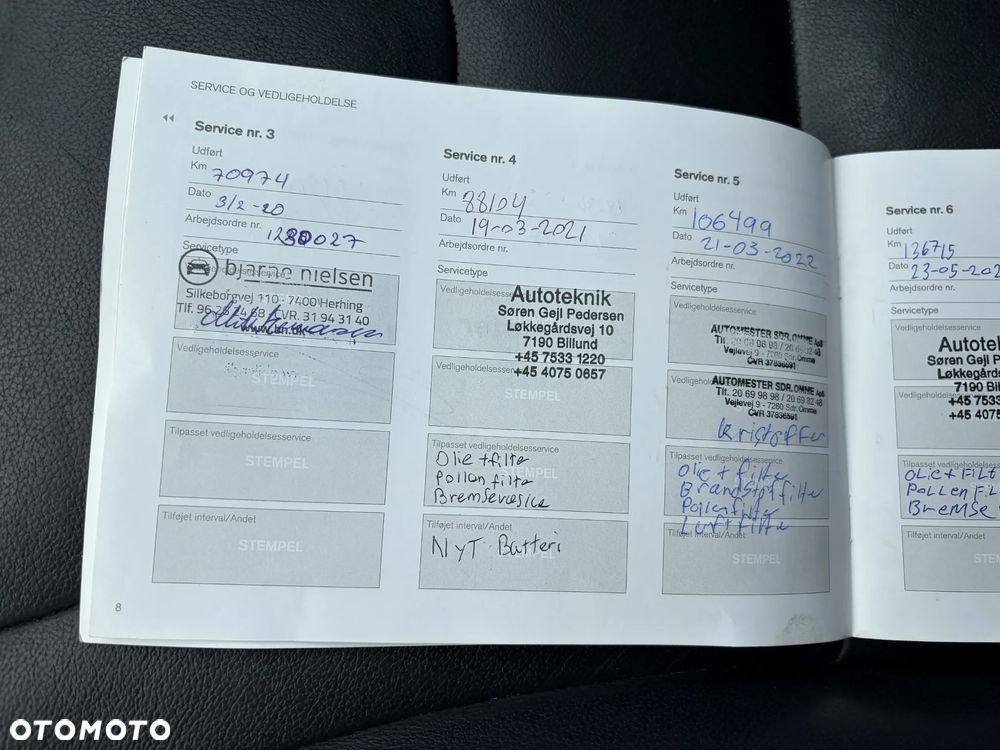 SERVICE OG VEDLIGEHOLDELSE
Service nr. 3
Udført
Km 70974
Dato 3/2-20
Arbejdsordre nr. 1280027
Servicetype
bjarne nielsen
Silkeborgvej 110 - 7400 Herning
CVR. 31 94 31 40
Vedligeholdelsesservice
STEMPEL
Tilpasset vedligeholdelsesservice
STEMPEL
Tilføjet interval/Andet
STEMPEL
8
Service nr. 4
Udført
Km 88104
Dato 19-03-2021
Arbejdsordre nr.
Servicetype
Vedligeholdelsesservice
Autoteknik
Søren Gejl Pedersen
Løkkegårdsvej 10
7190 Billund
+45 7533 1220
+45 4075 0657
STEMPEL
Tilpasset vedligeholdelsesservice
Olie + filter
Pollen filter
Bremsevæske
Tilføjet interval/Andet
NyT Batteri
Service nr. 5
Udført
Km 106499
Dato 21-03-2022
Arbejdsordre nr.
Servicetype
Vedligeholdelsesservice
AUTOMESTER SDR. OMME ApS
Vejlevej 9 - 7260 Sdr. Omme
CVR 37836591
AUTOMESTER SDR. OMME ApS
Tlf. 20 69 98 98 / 20 69 82 48
Vejlevej 9 - 7260 Sdr. Omme
CVR 37836591
Kristoffer
Tilpasset vedligeholdelsesservice
Olie + filter
Brandstoffilter
Pollenfilter
Luftfilter
Tilføjet interval/Andet
STEMPEL
Service nr. 6
Udført
Km 136715
Dato 23-05-202
Arbejdsordre nr.
Servicetype
Vedligeholdelses
Autotek
Søren Gejl P
Løkkegård
7190 Bi
+45 7533
+45 4075
Tilpasset vedligehold
OLIE + FILT
POLLEN FIL
BREMSE
Tilføjet interval/Andet
STE
OTOMOTO